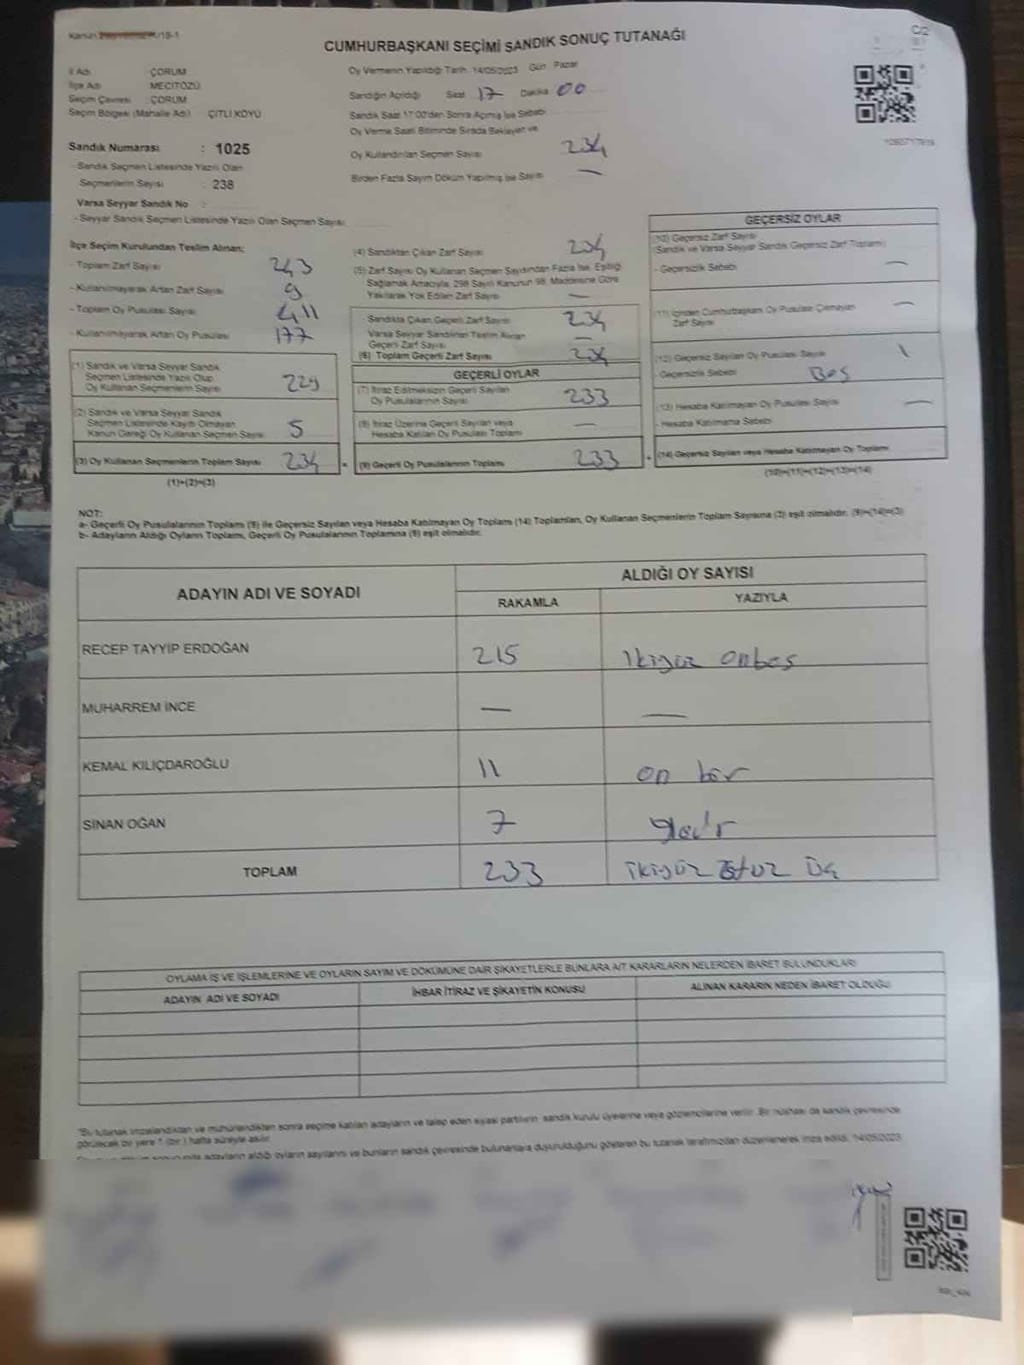 CUMHURBAŞKANI SEÇİMİ SANDIK SONUÇ TUTANAĞI
C/2
İl Adı : ÇORUM
İlçe Adı : MECİTÖZÜ
Seçim Çevresi : ÇORUM
Seçim Bölgesi (Mahalle Adı) : ÇİTLİ KÖYÜ
Sandık Numarası : 1025
- Sandık Seçmen Listesinde Yazılı Olan
Seçmenlerin Sayısı : 238
Varsa Seyyar Sandık No :
- Seyyar Sandık Seçmen Listesinde Yazılı Olan Seçmen Sayısı:
Oy Vermenin Yapıldığı Tarih :14/05/2023 Gün Pazar
Sandığın Açıldığı Saat 17 Dakika 00
Sandık Saat 17:00'den Sonra Açılmış İse Sebebi
Oy Verme Saati Bitiminde Sırada Bekleyen ve
Oy Kullandırılan Seçmen Sayısı 234
Birden Fazla Sayım Döküm Yapılmış İse Sayısı —
İlçe Seçim Kurulundan Teslim Alınan:
- Toplam Zarf Sayısı 243
- Kullanılmayarak Artan Zarf Sayısı 9
- Toplam Oy Pusulası Sayısı 411
- Kullanılmayarak Artan Oy Pusulası 177
(1) Sandık ve Varsa Seyyar Sandık
Seçmen Listesinde Yazılı Olup
Oy Kullanan Seçmenlerin Sayısı 229
(2) Sandık ve Varsa Seyyar Sandık
Seçmen Listesinde Kayıtlı Olmayan
Kanun Gereği Oy Kullanan Seçmen Sayısı 5
(3) Oy Kullanan Seçmenlerin Toplam Sayısı 234
(1)+(2)=(3)
(4) Sandıktan Çıkan Zarf Sayısı 234
(5) Zarf Sayısı Oy Kullanan Seçmen Sayısından Fazla İse, Eşitliği
Sağlamak Amacıyla, 298 Sayılı Kanunun 98. Maddesine Göre
Yakılarak Yok Edilen Zarf Sayısı —
Sandıkta Çıkan Geçerli Zarf Sayısı 234
Varsa Seyyar Sandıktan Teslim Alınan
Geçerli Zarf Sayısı —
(6) Toplam Geçerli Zarf Sayısı 234
GEÇERLİ OYLAR
(7) İtiraz Edilmeksizin Geçerli Sayılan
Oy Pusulalarının Sayısı 233
(8) İtiraz Üzerine Geçerli Sayılan veya
Hesaba Katılan Oy Pusulası Toplamı —
(9) Geçerli Oy Pusulalarının Toplamı 233
GEÇERSİZ OYLAR
(10) Geçersiz Zarf Sayısı
(Sandık ve Varsa Seyyar Sandık Geçersiz Zarf Toplamı)
- Geçersizlik Sebebi —
(11) İçinden Cumhurbaşkanı Oy Pusulası Çıkmayan
Zarf Sayısı —
(12) Geçersiz Sayılan Oy Pusulası Sayısı 1
- Geçersizlik Sebebi Boş
(13) Hesaba Katılmayan Oy Pusulası Sayısı —
- Hesaba Katılmama Sebebi
(14) Geçersiz Sayılan veya Hesaba Katılmayan Oy Toplamı
(10)+(11)+(12)+(13)=(14)
NOT:
a- Geçerli Oy Pusulalarının Toplamı (9) ile Geçersiz Sayılan veya Hesaba Katılmayan Oy Toplam (14) Toplamları, Oy Kullanan Seçmenlerin Toplam Sayısına (3) eşit olmalıdır. (9)+(14)=(3)
b- Adayların Aldığı Oyların Toplamı, Geçerli Oy Pusulalarının Toplamına (9) eşit olmalıdır.
ADAYIN ADI VE SOYADI
ALDIĞI OY SAYISI
RAKAMLA YAZIYLA
RECEP TAYYİP ERDOĞAN 215 ikiyüz onbeş
MUHARREM İNCE — —
KEMAL KILIÇDAROĞLU 11 on bir
SİNAN OĞAN 7 yedi
TOPLAM 233 ikiyüz otuz üç
OYLAMA İŞ VE İŞLEMLERİNE VE OYLARIN SAYIM VE DÖKÜMÜNE DAİR ŞİKAYETLERLE BUNLARA AİT KARARLARIN NELERDEN İBARET BULUNDUKLARI
ADAYIN ADI VE SOYADI İHBAR İTİRAZ VE ŞİKAYETİN KONUSU ALINAN KARARIN NEDEN İBARET OLDUĞU
"Bu tutanak imzalandıktan ve mühürlendikten sonra seçime katılan adayların ve talep eden siyasi partilerin sandık kurulu üyelerine veya gözlemcilerine verilir. Bir nüshası da sandık çevresinde
görülecek bir yere 1 (bir) hafta süreyle asılır.
adayların aldığı oyların sayılarını ve bunların sandık çevresinde bulunanlara duyurulduğunu gösteren bu tutanak tarafımızdan düzenlenerek imza edildi. 14/05/2023